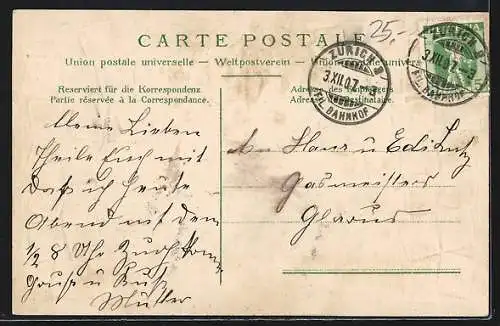 25.-
CARTE POSTALE
Union postale universelle – Weltpostverein – Union postale universelle
Reserviert für die Korrespondenz
Partie réservée à la Correspondance.
Adresse des Empfängers
Adresse du destinataire.
ZÜRICH 9
3.XII.07.
FIL. BAHNHOF
HELVETIA
ZÜRICH 9
3.XII.07.
FIL. BAHNHOF
Meine Lieben
Theile Euch mit
daß ich heute
Abend mit dem
1/2 8 Uhr Zug komme
Gruß u Kuß
Mutter
An Hans u Edi Lutz
Gasmeisters
Glarus